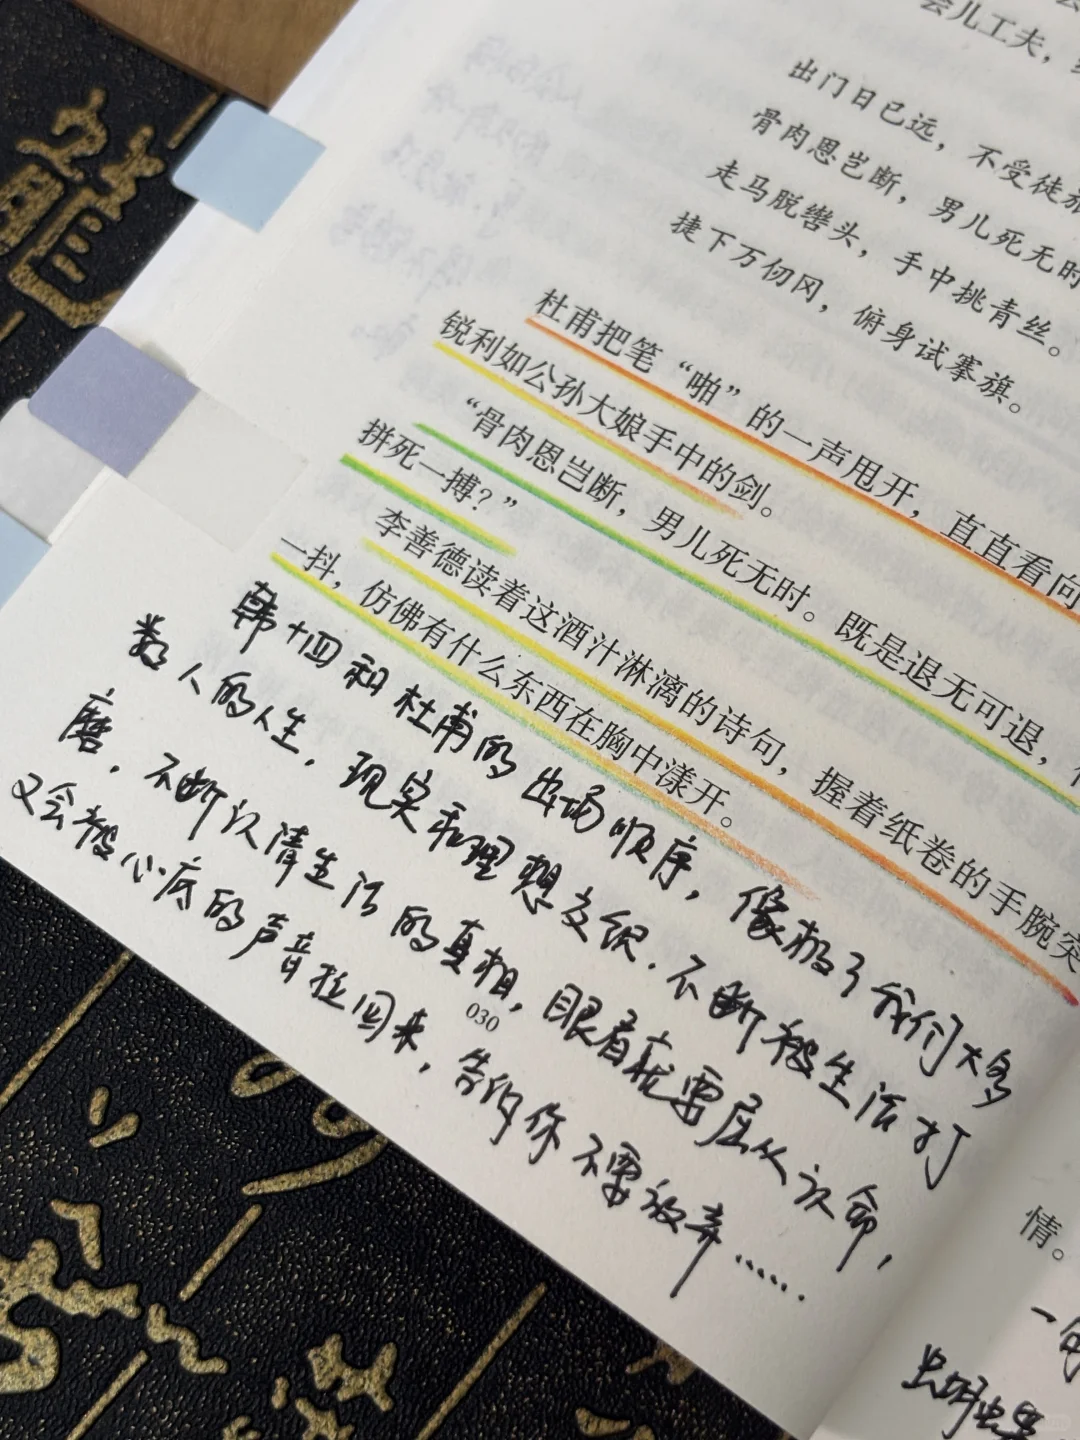 会儿工夫，
出门日已远，不受徒旅
骨肉恩岂断，男儿死无时
走马脱辔头，手中挑青丝。
捷下万仞冈，俯身试搴旗。
杜甫把笔“啪”的一声甩开，直直看向
锐利如公孙大娘手中的剑。
“骨肉恩岂断，男儿死无时。既是退无可退，
拼死一搏？”
李善德读着这酒汁淋漓的诗句，握着纸卷的手腕突
一抖，仿佛有什么东西在胸中漾开。
韩十四和杜甫的出场顺序，像极了我们大多
数人的人生，现实和理想交织.不断被生活打
磨，不断认清生活的真相，眼看就要屈从认命，
又会被心底的声音拉回来，告诉你不要放弃……
030
情。
龍